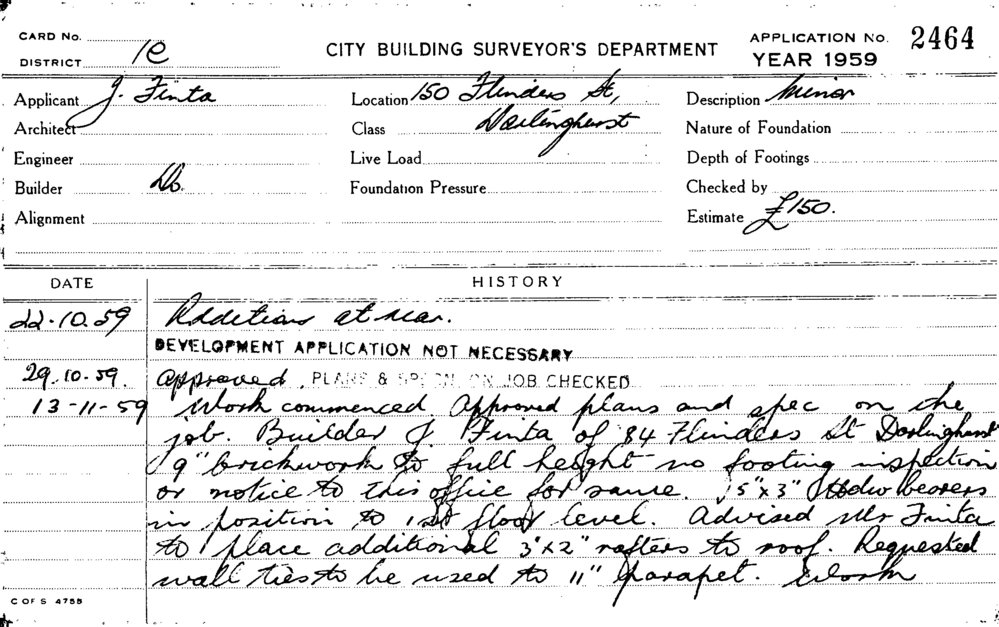 CARD No.
DISTRICT 1C
CITY BUILDING SURVEYOR'S DEPARTMENT
APPLICATION No. 2464
YEAR 1959
Applicant J. Finta
Location 150 Flinders St,
Description Minor
Architect
Class Darlinghurst
Nature of Foundation
Engineer
Live Load
Depth of Footings
Builder Do.
Foundation Pressure
Checked by
Alignment
Estimate £150.
DATE HISTORY
22.10.59 Additions at rear.
DEVELOPMENT APPLICATION NOT NECESSARY
29.10.59. Approved. PLANS & SPECN. ON JOB CHECKED
13-11-59 Work commenced. Approved plans and spec on the
job. Builder J. Finta of 84 Flinders St Darlinghurst
9" brickwork to full height no footing inspection
or notice to this office for same. 5" x 3" Hdw bearers
in position to 1st floor level. Advised Mr Finta
to place additional 3" x 2" rafters to roof. Requested
wall ties to be used to 11" parapet. Work
C OF S 4755